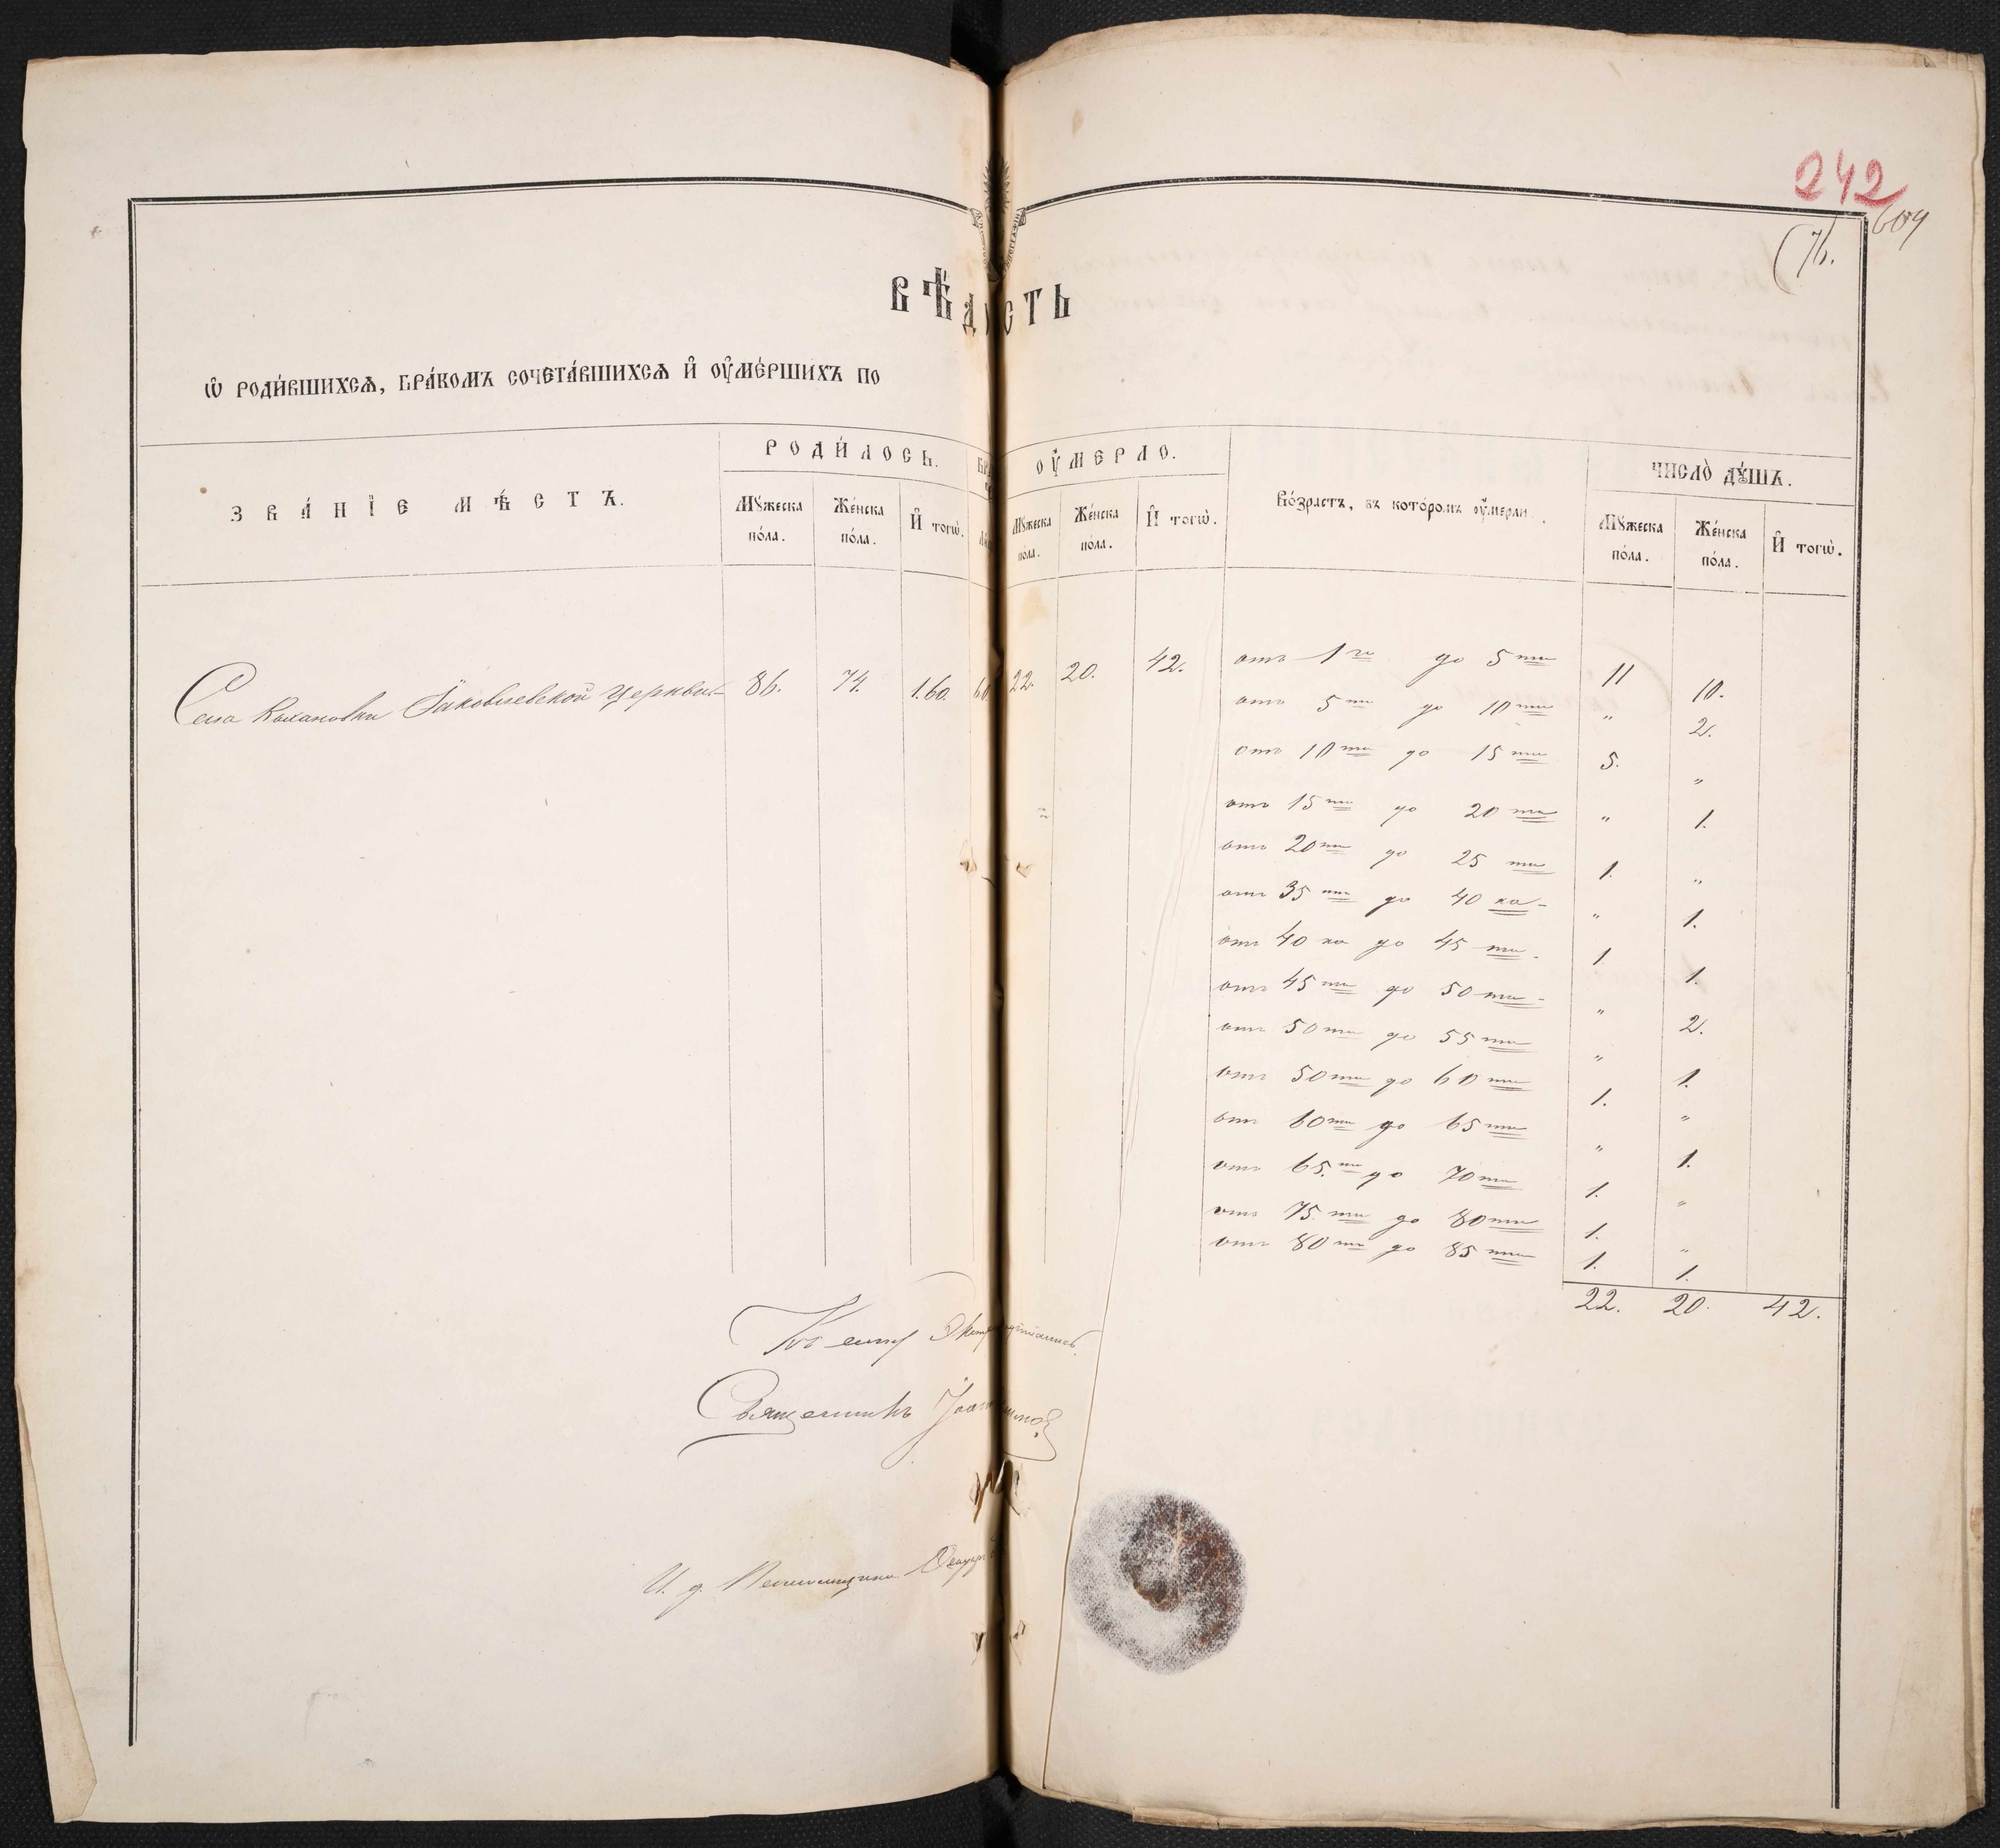 242
604
76.
ВѢДОСТЬ
Ѡ РОДИ́ВШИХСѦ, БРА́КОМЪ СОЧЕТА́ВШИХСѦ И҆ ОУ҆МЕ́РШИХЪ ПО
ЗВА́НІЕ МѢ́СТЪ.
РОДИ́ЛОСЬ.
Мꙋжеска по́ла.
Же́нска по́ла.
И҆ тогѡ̀.
ОУ҆МЕРЛО.
Мꙋжеска по́ла.
Же́нска по́ла.
И҆ тогѡ̀.
Во́зрастъ, въ кото́ромъ оу҆́мерли.
ЧИСЛО̀ ДꙊШЪ.
Мꙋжеска по́ла.
Же́нска по́ла.
И҆ тогѡ̀.
Села Кохановки Іаковлевской церкви 86. 74. 160. 60 22. 20. 42.
отъ 1го до 5ти 11 10.
отъ 5ти до 10ти " 2.
отъ 10ти до 15ти 5. "
отъ 15ти до 20ти " 1.
отъ 20ти до 25ти 1. "
отъ 35ти до 40ка " 1.
отъ 40ка до 45ти 1 1.
отъ 45ти до 50ти " 2.
отъ 50ти до 55ти " 1.
отъ 50ти до 60ти 1. "
отъ 60ти до 65ти " 1.
отъ 65.ти до 70ти 1. "
отъ 75ти до 80ти 1. "
отъ 80ти до 85ти 1. 1.
22. 20. 42.
Къ сему
Священникъ
И. д.